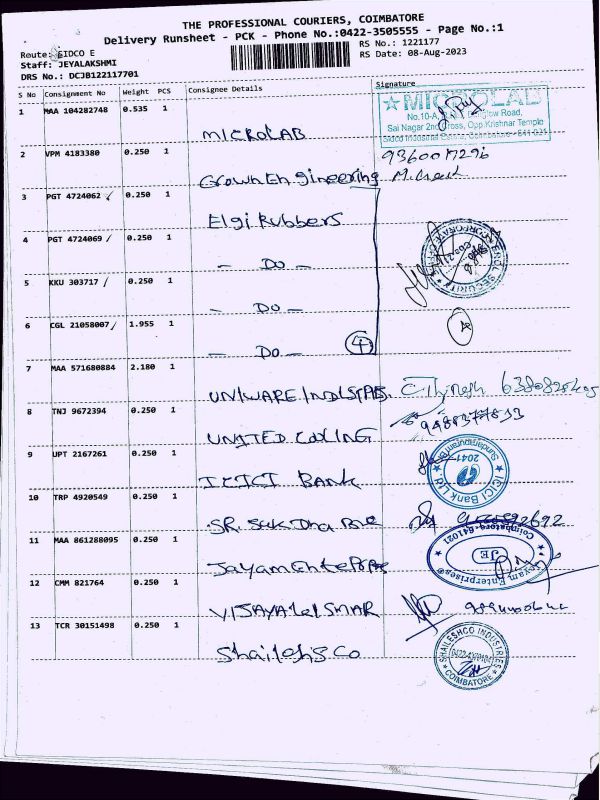 THE PROFESSIONAL COURIERS, COIMBATORE
Delivery Runsheet - PCK - Phone No.:0422-3505555 - Page No.:1
Route: SIDCO E
RS No.: 1221177
Staff: JEYALAKSHMI
RS Date: 08-Aug-2023
DRS No.: DCJB122117701
S No Consignment No Weight PCS Consignee Details Signature
1 MAA 104282748 0.535 1
MICROLAB
★ MICROLAB
No.10-A, Road,
Sai Nagar 2nd Cross, Opp.Krishnar Temple
Sidco Industrial Estate, Coimbatore - 641 021
2 VPM 4183380 0.250 1
Crown Engineering
9360017296
3 PGT 4724062 / 0.250 1
Elgi Rubbers
4 PGT 4724069 / 0.250 1
- Do -
SECURITY
CORPORATE OFFICE
5 KKU 303717 / 0.250 1
- Do -
6 CGL 21058007 / 1.955 1
- Do - 4
7 MAA 571680884 2.180 1
UNIWARE
8 TNJ 9672394 0.250 1
UNITED COOLING
9 UPT 2167261 0.250 1
ICICI BANK
ICICI Bank Ltd
Sundarapuram Br.
2041
10 TRP 4920549 0.250 1
SR.
11 MAA 861288095 0.250 1
Jayam Enterprise
Jayam Enterprises
JE
Coimbatore-641021
12 CMM 821764 0.250 1
13 TCR 30151498 0.250 1
Shailesh & Co
SHAILESHCO INDUSTRIES
COIMBATORE